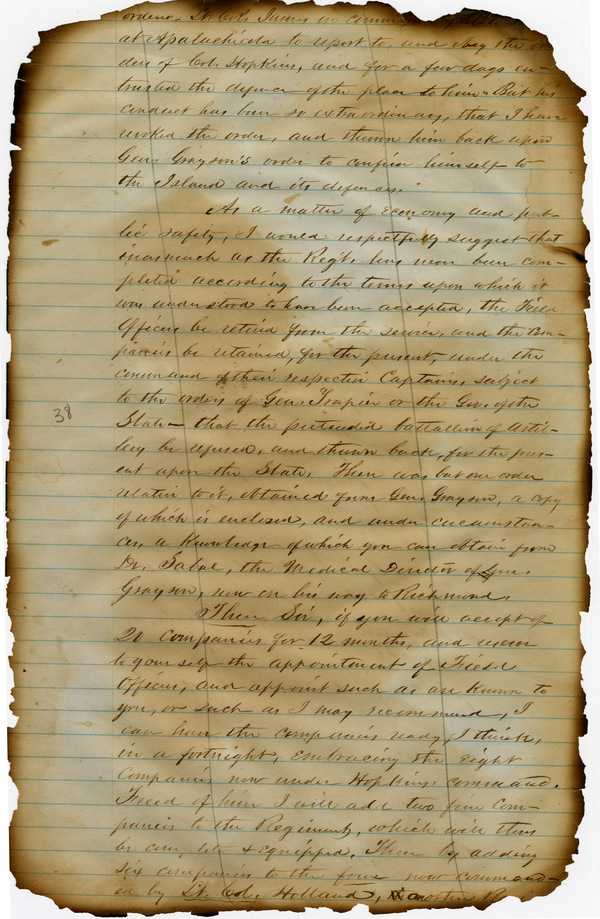 ordered Lt. Col. James in command
at Apalachicola to report to, and obey the or-
ders of Col. Hopkins, and for a few days en-
trusted the defence of the place to him. But his
conduct has been so extraordinary, that I have
revoked the order, and thrown him back upon
Gen. Grayson's order to confine himself to
the Island and its defences.
As a matter of Economy and pub-
lic safety, I would respectfully suggest that
inasmuch as the Regt. has never been com-
pleted according to the terms upon which it
was understood to have been accepted, the Field
Officers be retired from the service, and the Com-
panies be retained, for the present, under the
command of their respective Captains, subject
to the orders of Gen. Trapier or the Gov. of the
State – that the pretended battallion of Artil-
lery be refused, and thrown back, for the pres-
ent upon the State. There was but one order
relative to it, obtained from Gen. Grayson, a copy
of which is enclosed, and under circumstan-
ces, a knowledge of which you can obtain from
Dr. the Medical Director of Gen.
Grayson, now on his way to Richmond.
38
Then Sir, if you will accept of
20 Companies for 12 months, and reserve
to yourself the appointment of Field
Officers, and appoint such as are known to
you, or such as I may recommend, I
can have the companies ready, I think,
in a fortnight, embracing the eight
Companies now under Hopkins' command.
Freed of him I will add two fine Com-
panies to the Regiment, which will then
be complete & equipped. Then by adding
six companies to the force now command-
ed by Lt. Col. Holland, another